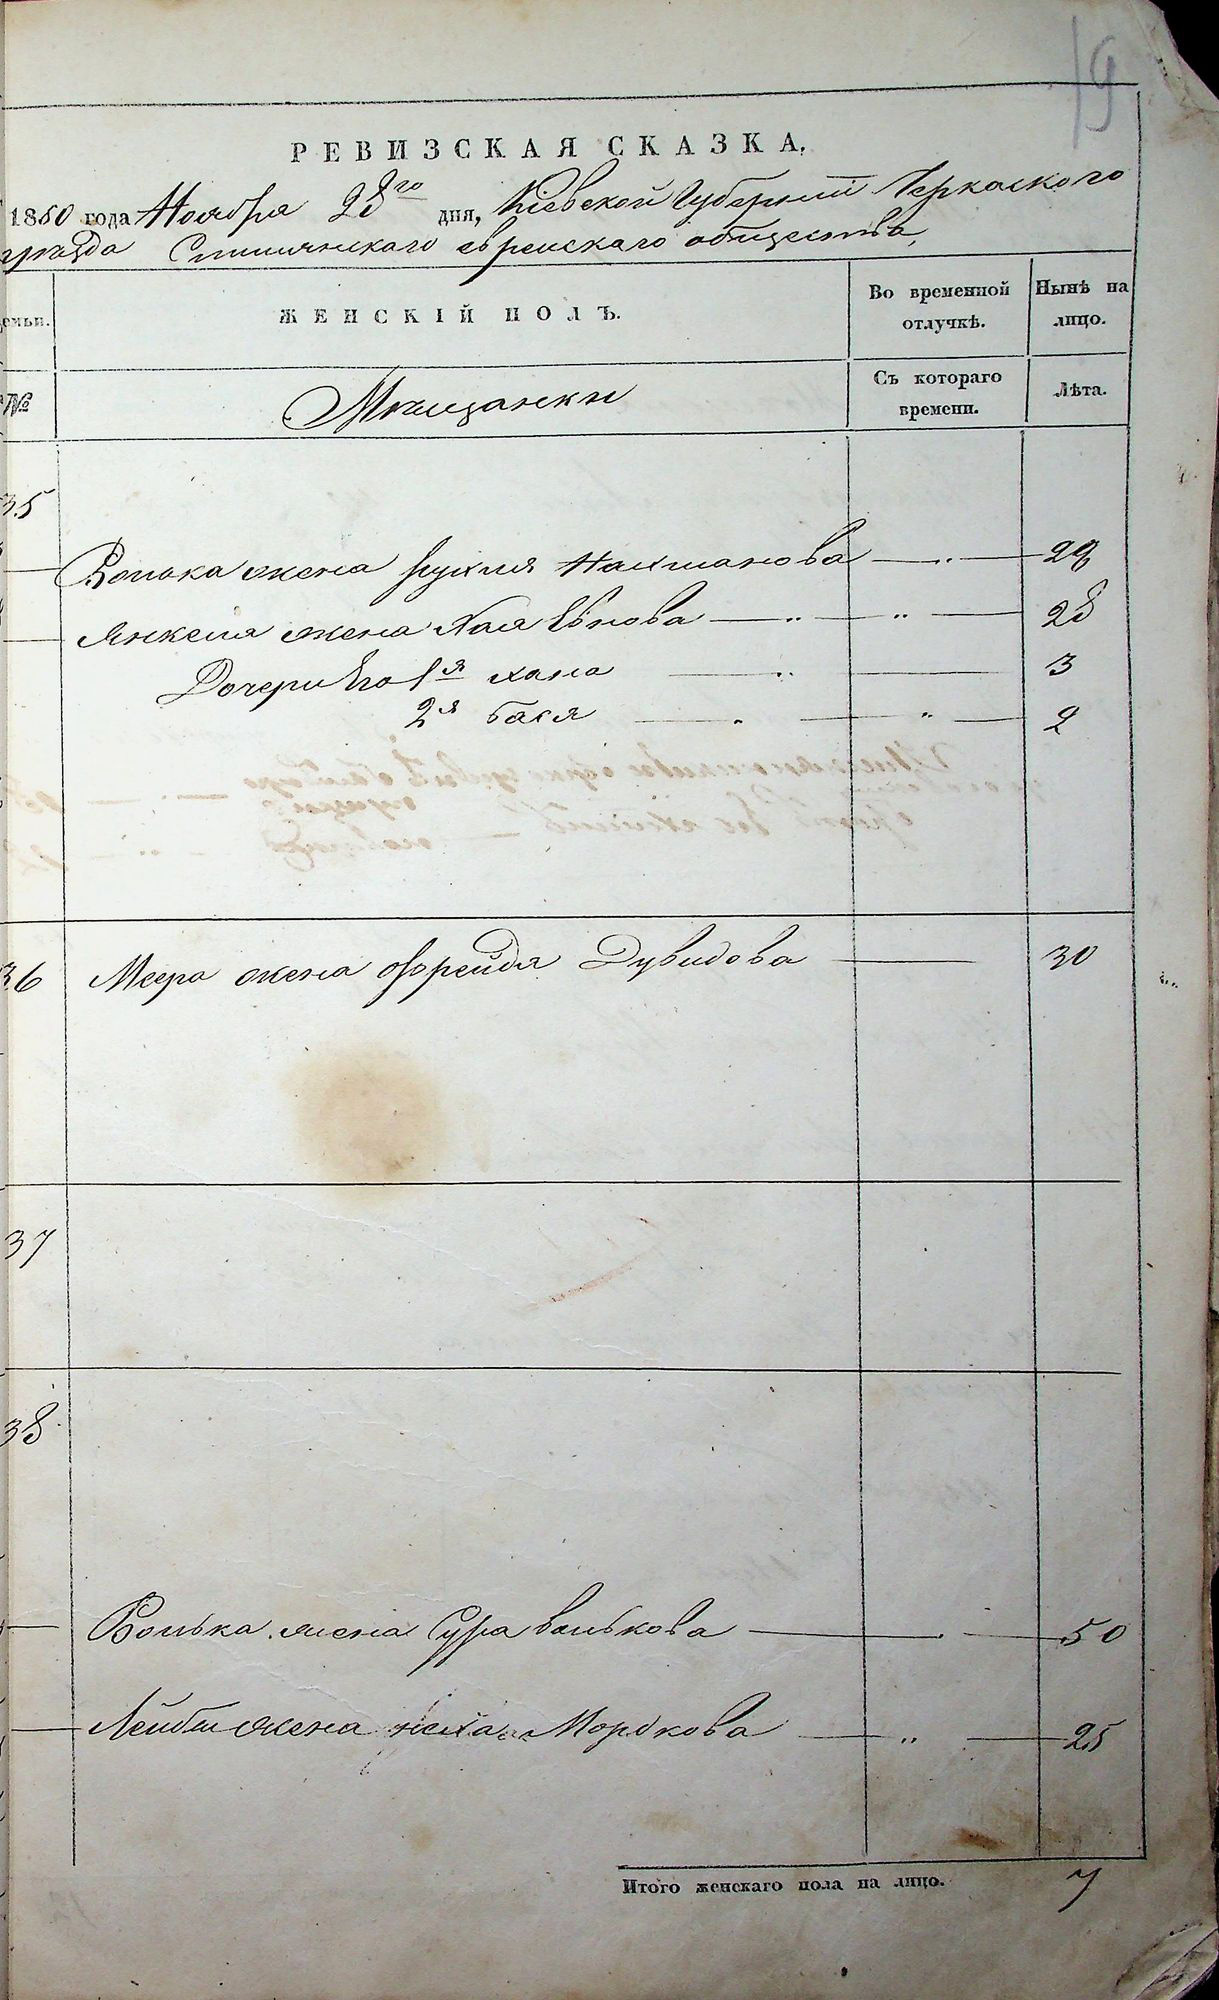 19
РЕВИЗСКАЯ СКАЗКА.
1850 года Ноября 28го дня, Кіевской Губерніи Черкаского
уѣзда еврейскаго общества
семьи.
ЖЕНСКІЙ ПОЛЪ.
Во временной отлучкѣ.
Нынѣ на лицо.
№
Мѣщанки
Съ котораго времени.
Лѣта.
35
Волька жена Рухля Нахманова — „ — 29
Янкеля жена Хая — „ — „ — 28
Дочери Его 1я Хана — „ — 3
2я Бася — „ — „ — 2
36 Меера жена Фрейда Дувидова — 30
37
38
Волька жена Сура Волькова — „ — 50
Лейбы жена Моркова — „ — 25
Итого женскаго пола на лицо. 7